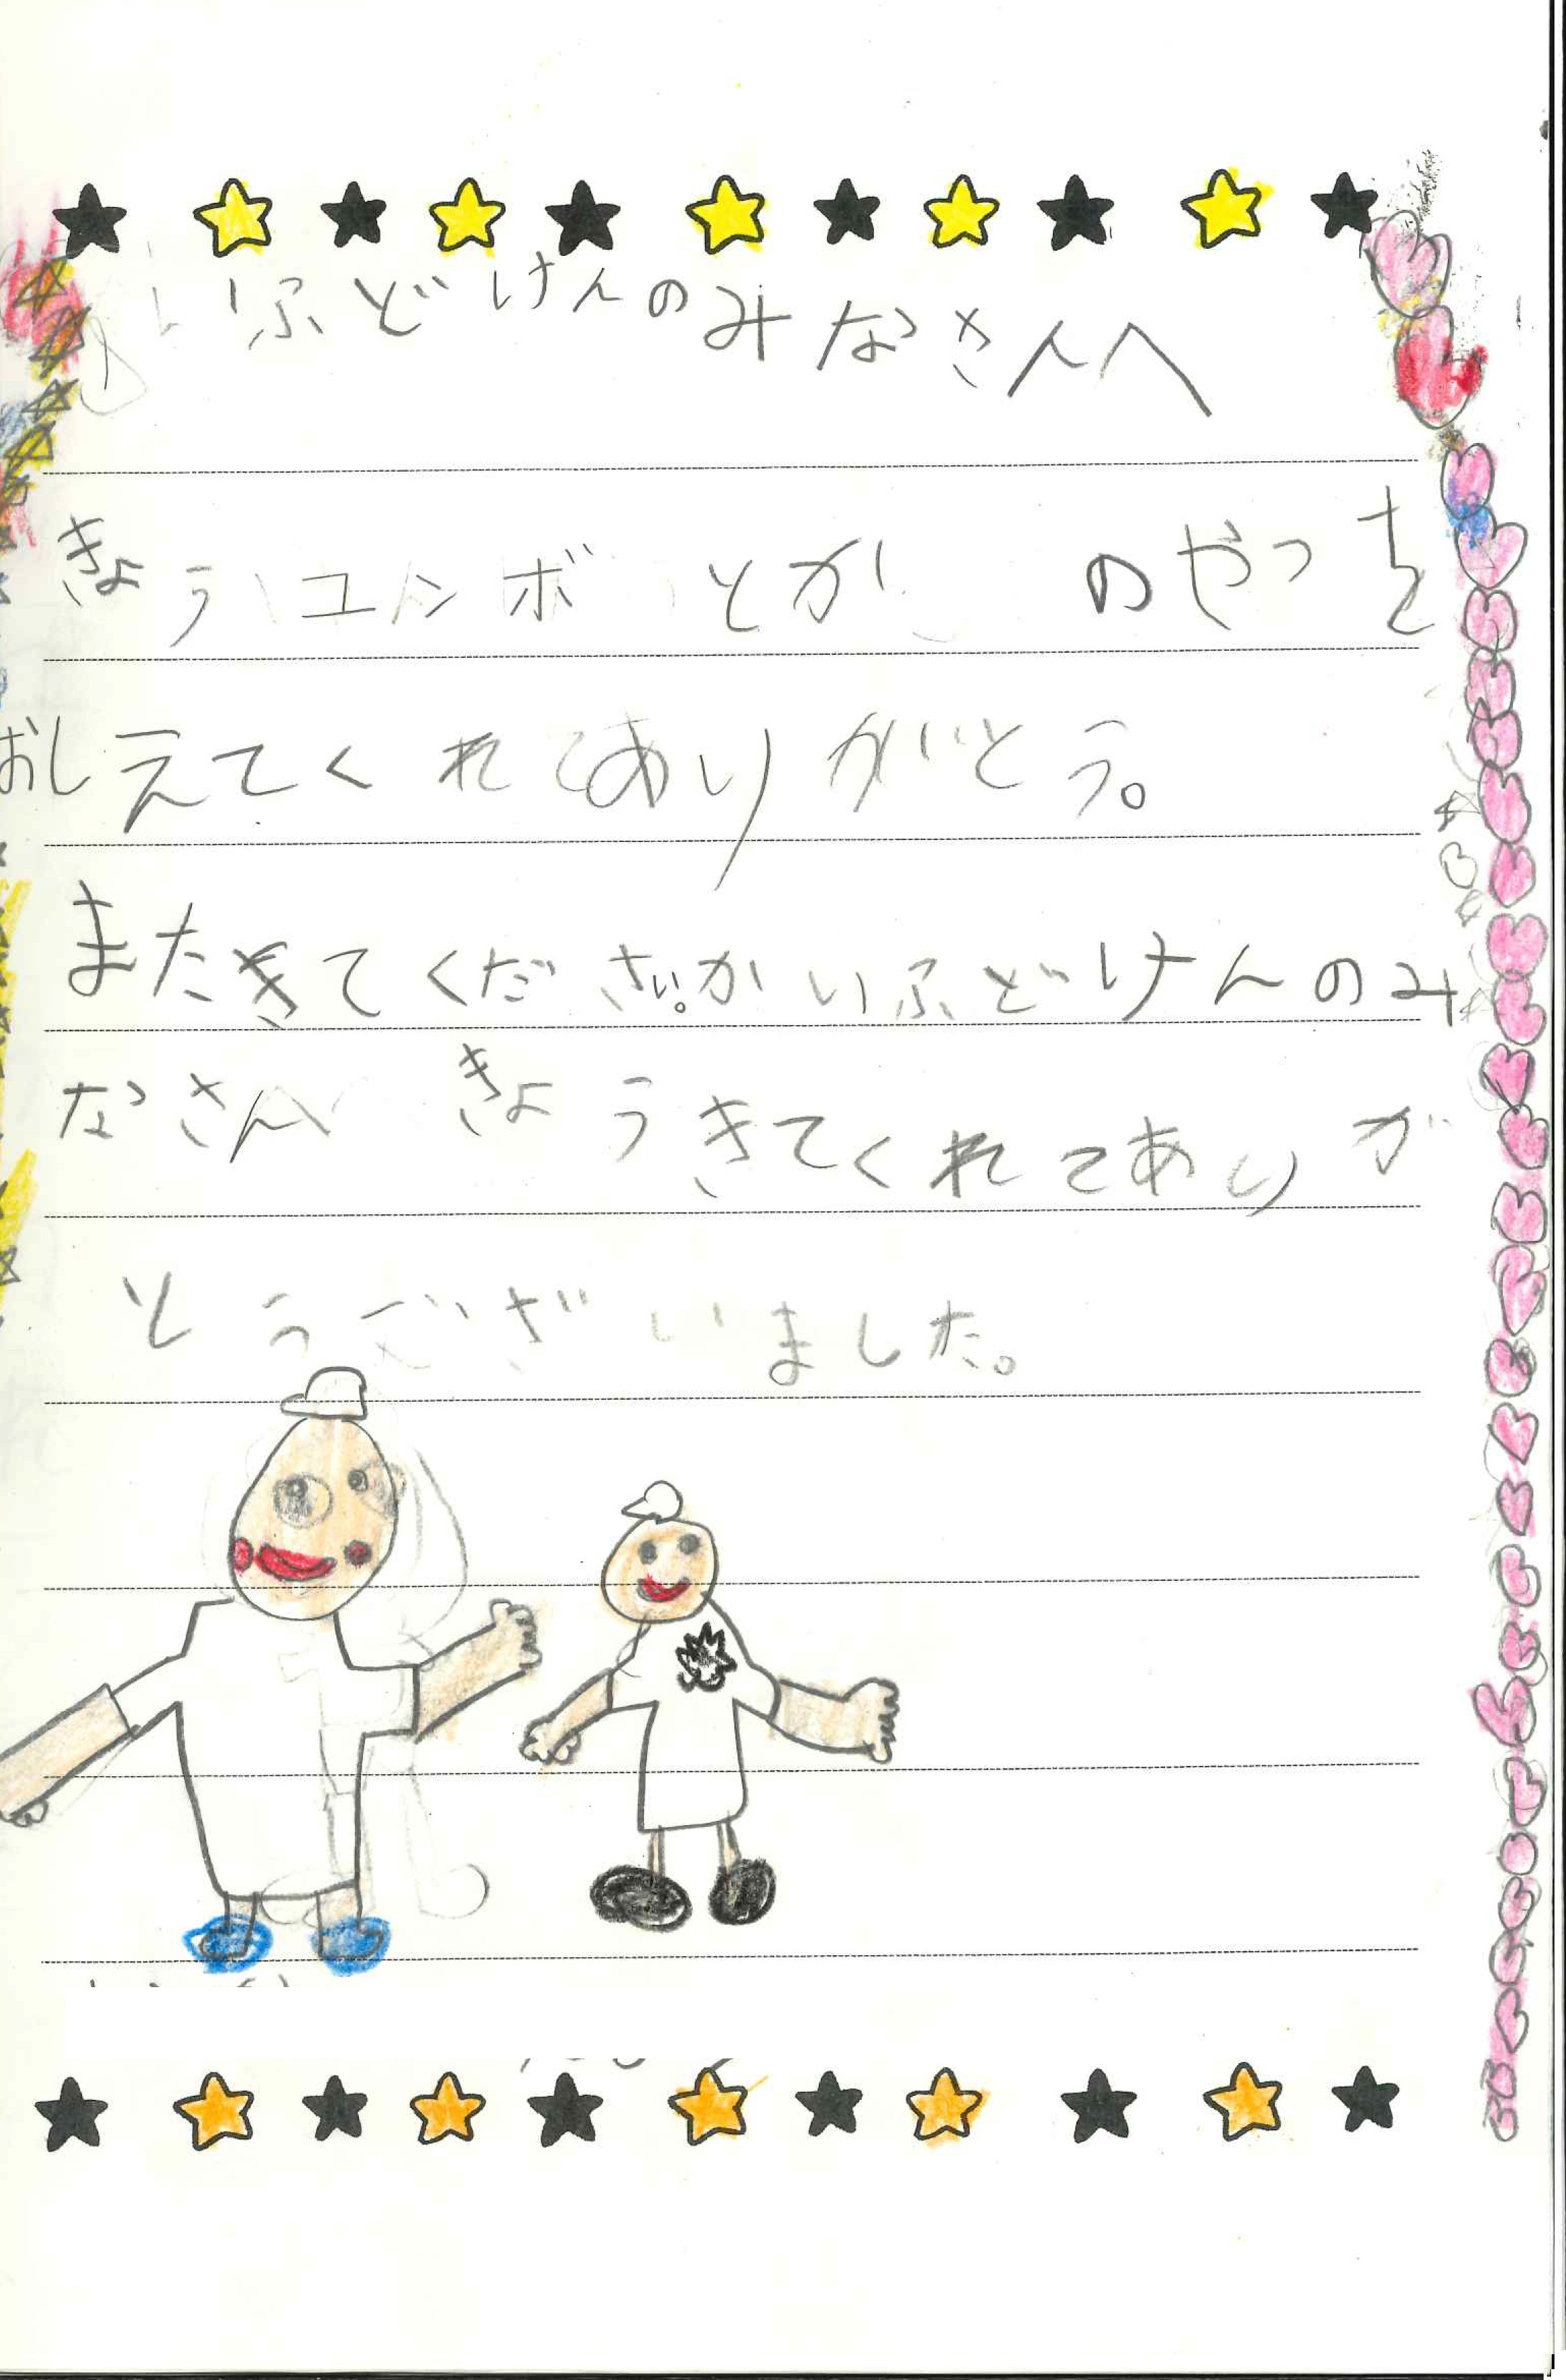 いふどけんのみなさんへ
きょうユンボとかのやつを
おしえてくれてありがとう。
またきてください。かいふどけんのみ
なさんへ きょうきてくれてありが
とうございました。